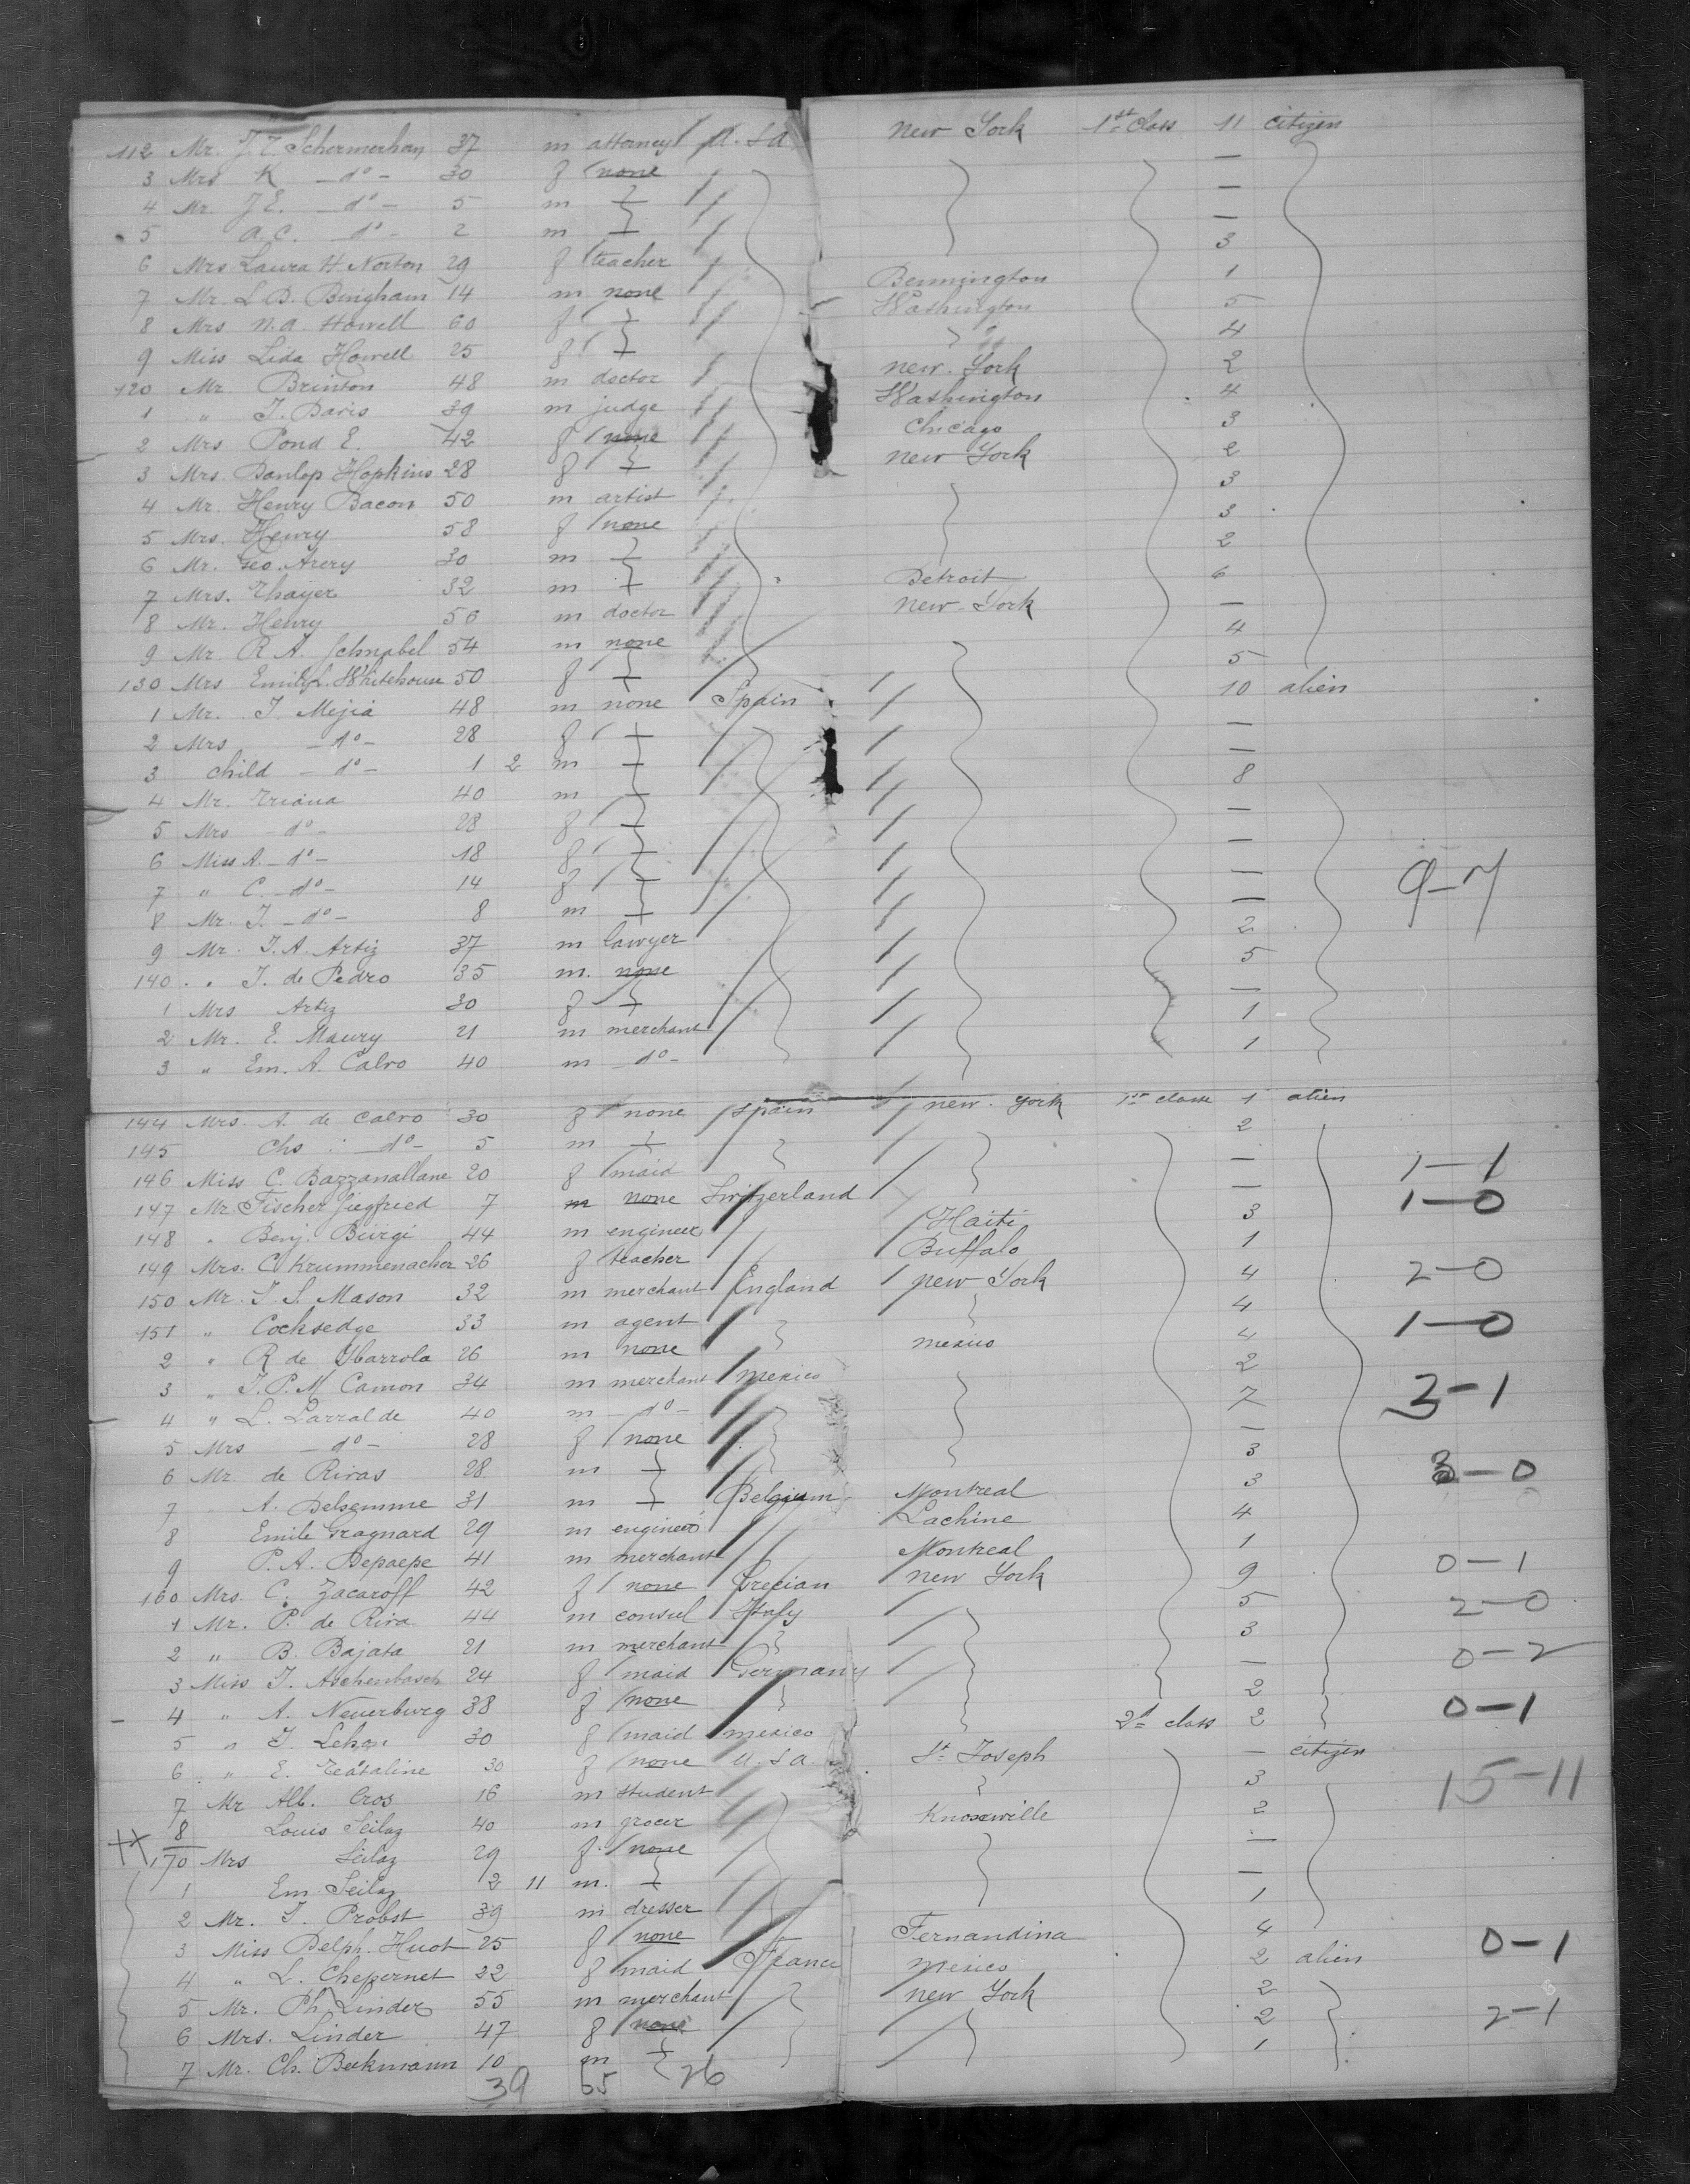 112 Mr. J. F. Schermerhorn 37 m attorney U.S.A New York 1st class 11 citizen
3 Mrs K — do — 30 f none —
4 Mr. J E. — do — 5 m —
5 A. C. — do — 2 m —
6 Mrs. Laura H Norton 29 f teacher 3
7 Mr. L. D. Bingham 14 m none Bennington 1
8 Mrs N. A. Howell 60 f Washington 5
9 Miss Lida Howell 25 f " 4
120 Mr. Brinton 48 m doctor New York 2
1 " J. Davis 39 m judge Washington 4
2 Mrs Pond E. 42 f none Chicago 3
3 Mrs. Danlop Hopkins 28 f New York 2
4 Mr. Henry Bacon 50 m artist 3
5 Mrs. Henry 58 f none 3
6 Mr. Geo. Avery 30 m 2
7 Mrs. Thayer 32 m Detroit 6
8 Mr. Henry 56 m doctor New York —
9 Mr. R A. Schnabel 54 m none 4
130 Mrs Emily L. Whitehouse 50 f 5
1 Mr. J. Mejia 48 m none Spain 10 alien
2 Mrs — do — 28 f —
3 child — do — 1 2 m —
4 Mr. Triana 40 m 8
5 Mrs — do — 28 f —
6 Miss A. — do — 18 f —
7 " C. — do — 14 f — 9-7
8 Mr. J. — do — 8 m —
9 Mr. J. A. Artiz 37 m lawyer 2
140 " J. de Pedro 35 m. none 5
1 Mrs Artiz 30 f —
2 Mr. E. Maury 21 m merchant 1
3 " Em. A. Calvo 40 m do — 1
144 Mrs. A. de Calvo 30 f none Spain New York 1st class 1 alien
145 Chs — do — 5 m 2
146 Miss C. Bazzanallane 20 f maid — 1-1
147 Mr. Fischer Siegfried 7 m none Switzerland — 1-0
148 " Benj. Bürgi 44 m engineer Haiti 3
149 Mrs. C Krummenacher 26 f teacher Buffalo 1
150 Mr. J. S. Mason 32 m merchant England New York 4 2-0
151 " Cocksedge 33 m agent 4
2 " R de Ybarrola 26 m none Mexico 4 1-0
3 " J. P. M Camon 34 m merchant Mexico 2
4 " L. Larralde 40 m — do — 7 3-1
5 Mrs — do — 28 f none —
6 Mr. de Rivas 28 m 3
7 A. Delsemme 31 m Belgium Montreal 3 3-0
8 Emile Gragnard 29 m engineer Lachine 4
9 P. A. Depaepe 41 m merchant Montreal 1
160 Mrs. C. Zacaroff 42 f none Grecian New York 9 0-1
1 Mr. P. de Riva 44 m consul Italy 5 2-0
2 " B. Bajata 21 m merchant 3
3 Miss J. Aschenbasch 24 f maid Germany — 0-2
4 " A. Neuerburg 38 f none 2
5 " J. 30 f maid Mexico 2d class 2 0-1
6 " E. 30 f none U.S.A. St Joseph — citizen
7 Mr Alb. Cros 16 m student 3 15-11
8 Louis Seilaz 40 m grocer Knoxville 2
170 Mrs Seilaz 29 f. none —
1 Em. Seilaz 2 11 m. —
2 Mr. J. Probst 39 m dresser 1
3 Miss Delph. Huot 25 f none Fernandina 4
4 " L. Chepernet 22 f maid France Mexico 2 alien 0-1
5 Mr. Ph. Linder 55 m merchant New York 2
6 Mrs. Linder 47 f none 2 2-1
7 Mr. Ch. Beekmann 10 m 1
39 65 26